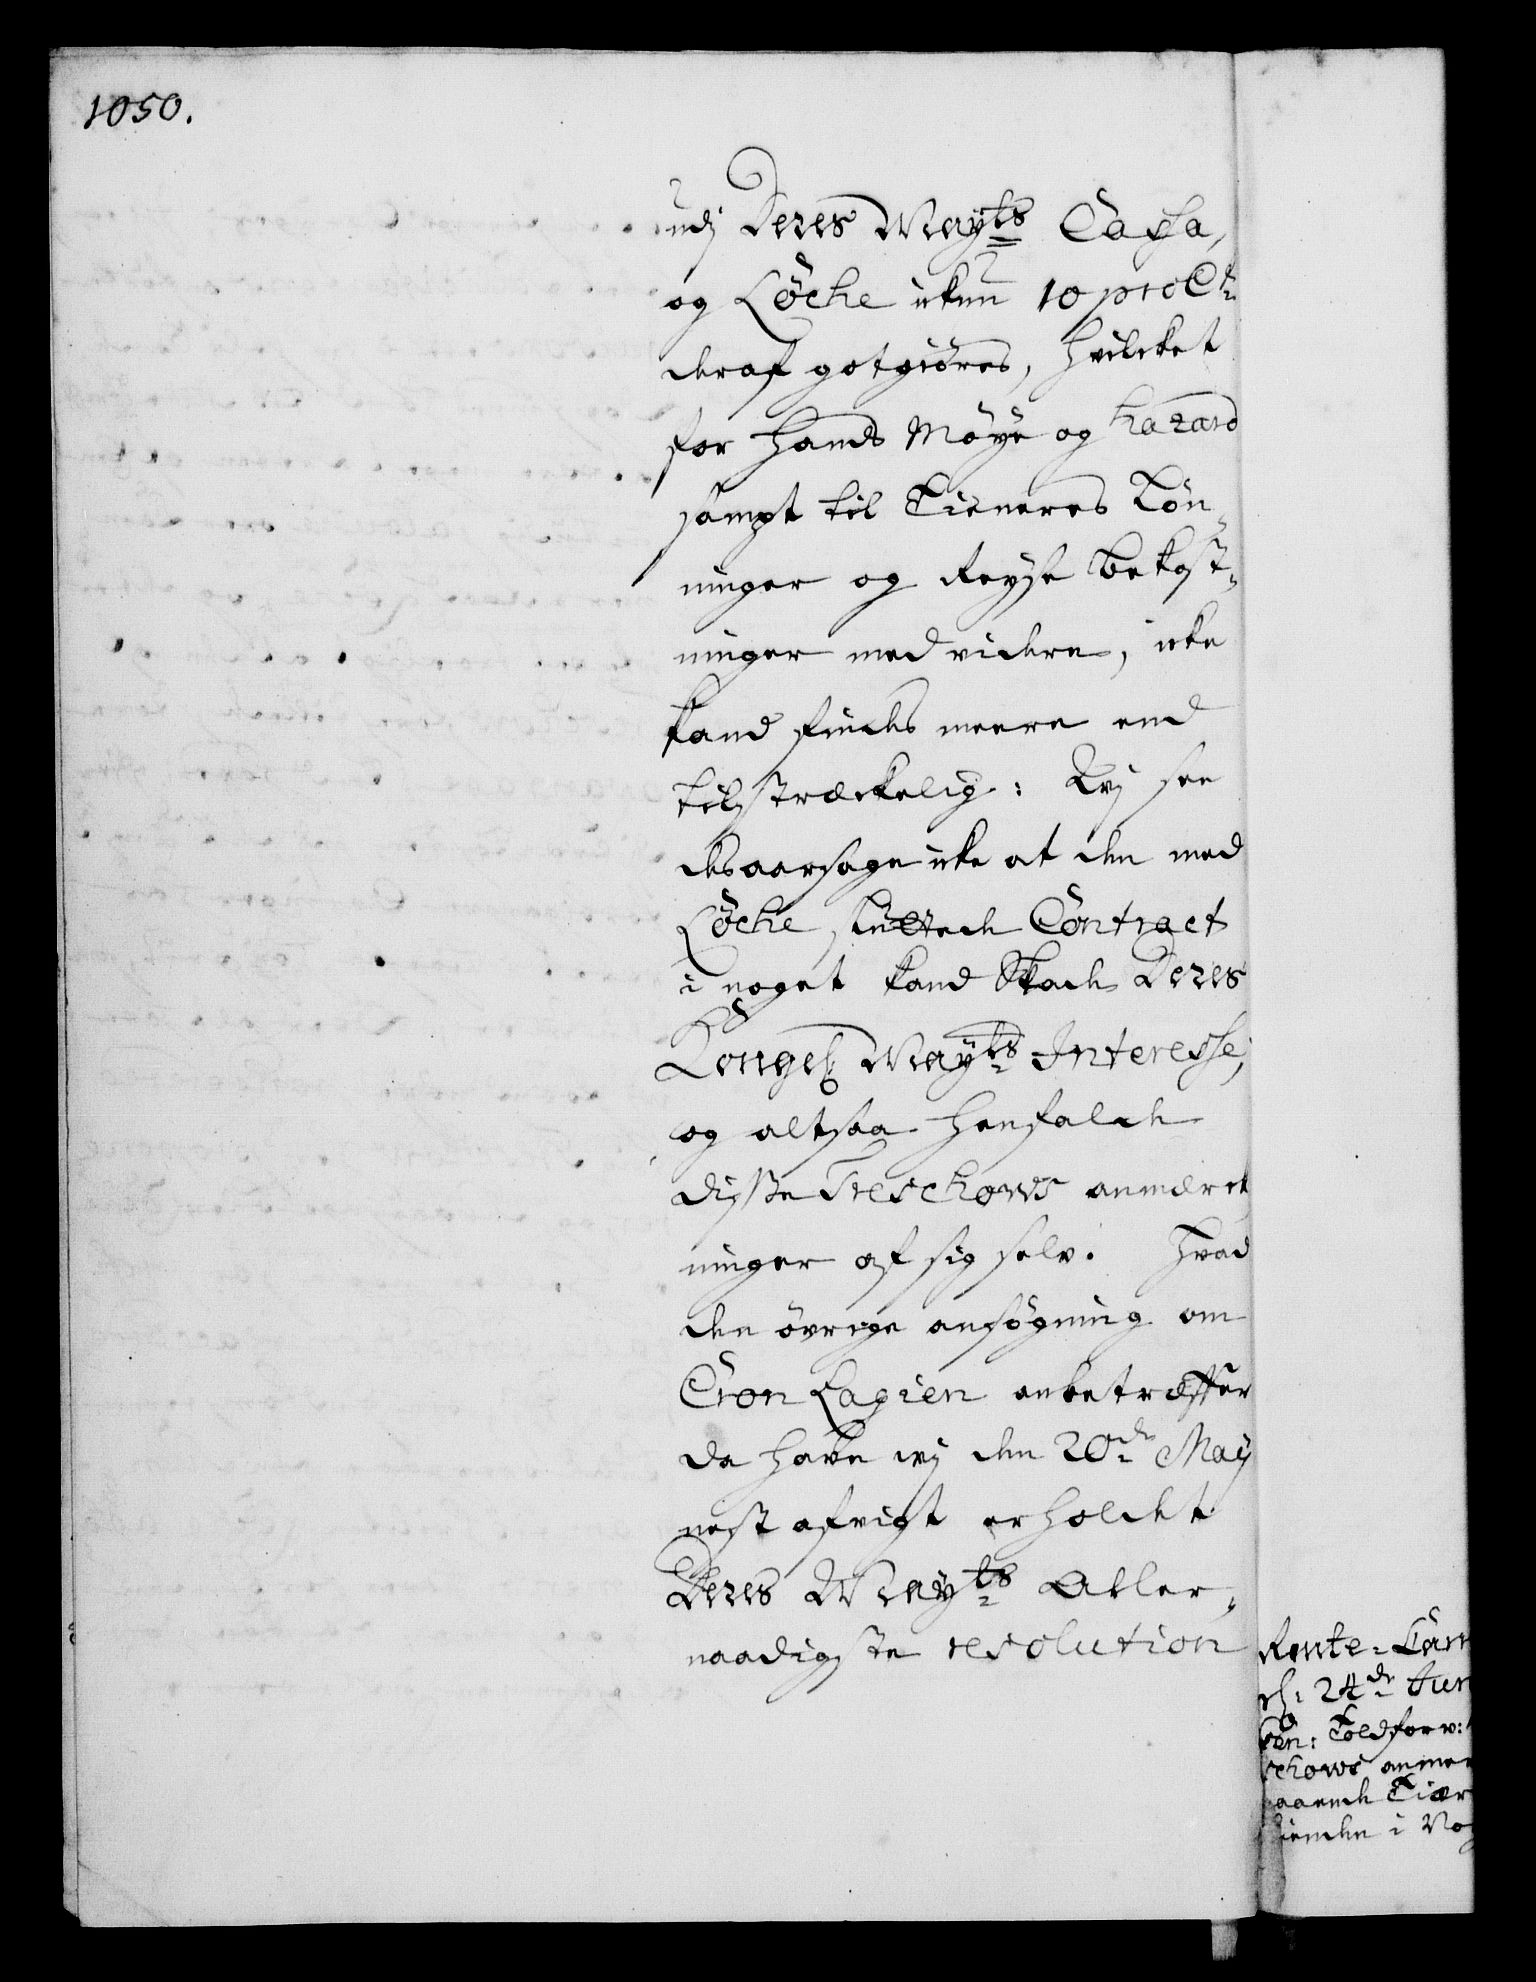 1050.
udj Deres Mayts Cassa,
og Löche ickun 10 pro Ct:
deraf gotgiöres, hvilcket
for hands Möye og hazard
sampt til Tieneres Lön-
ninger og Reyse bekost-
ninger med videre, icke
kand findes meere end
tilstræckelig: Wj see
desaarsage icke at den med
Löche sluttede Contract
i noget kand Skade Deres
Kongel: Mayts Interesse,
og altsaa henfalde
disse Treschows anmærck
ninger af sig selv. Hvad
den övrige ansögning om
Cron Lagien anbetræffer
da have wj den 20de May
nest afvigt erholdet
Deres Mayts Aller-
naadigste resolution
Rente-Cam
d: 24de Jun
Toldforv:
schows anmer
aaende Tiær
tienden i No